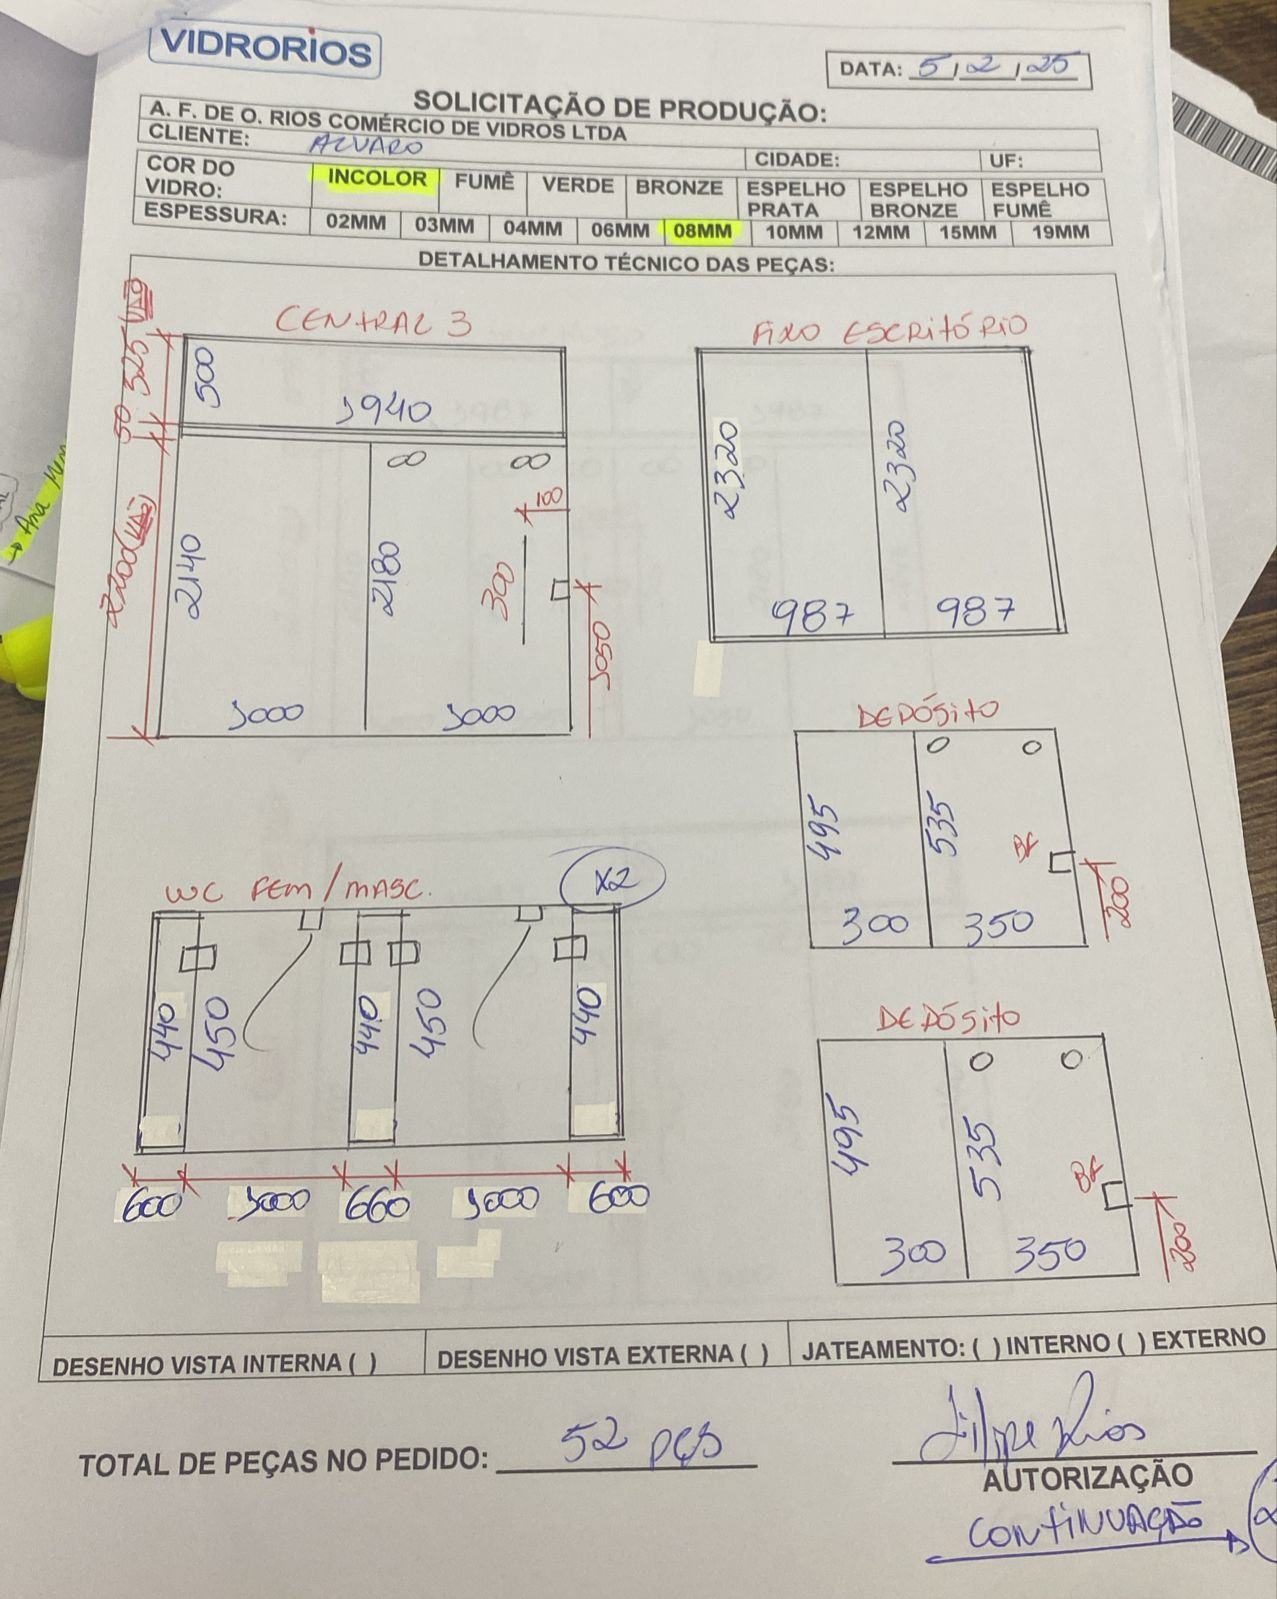 VIDRORIOS
DATA: 5/2/25
SOLICITAÇÃO DE PRODUÇÃO:
A. F. DE O. RIOS COMÉRCIO DE VIDROS LTDA
CLIENTE: ALVARO CIDADE: UF:
COR DO VIDRO: INCOLOR FUMÊ VERDE BRONZE ESPELHO PRATA ESPELHO BRONZE ESPELHO FUMÊ
ESPESSURA: 02MM 03MM 04MM 06MM 08MM 10MM 12MM 15MM 19MM
DETALHAMENTO TÉCNICO DAS PEÇAS:
CENTRAL 3
525 (VÃO)
50
500
1940
2200 (VÃO)
2140
2180
100
300
1050
1000 1000
FIXO ESCRITÓRIO
2320 2320
987 987
DEPÓSITO
495 535
BF
200
300 350
WC FEM/MASC. X2
440 450 440 450 440
600 1000 660 1000 600
DEPÓSITO
495 535
BF
200
300 350
DESENHO VISTA INTERNA ( ) DESENHO VISTA EXTERNA ( ) JATEAMENTO: ( ) INTERNO ( ) EXTERNO
TOTAL DE PEÇAS NO PEDIDO: 52 PÇS
Filipe Rios
AUTORIZAÇÃO
CONTINUAÇÃO
→ Ana